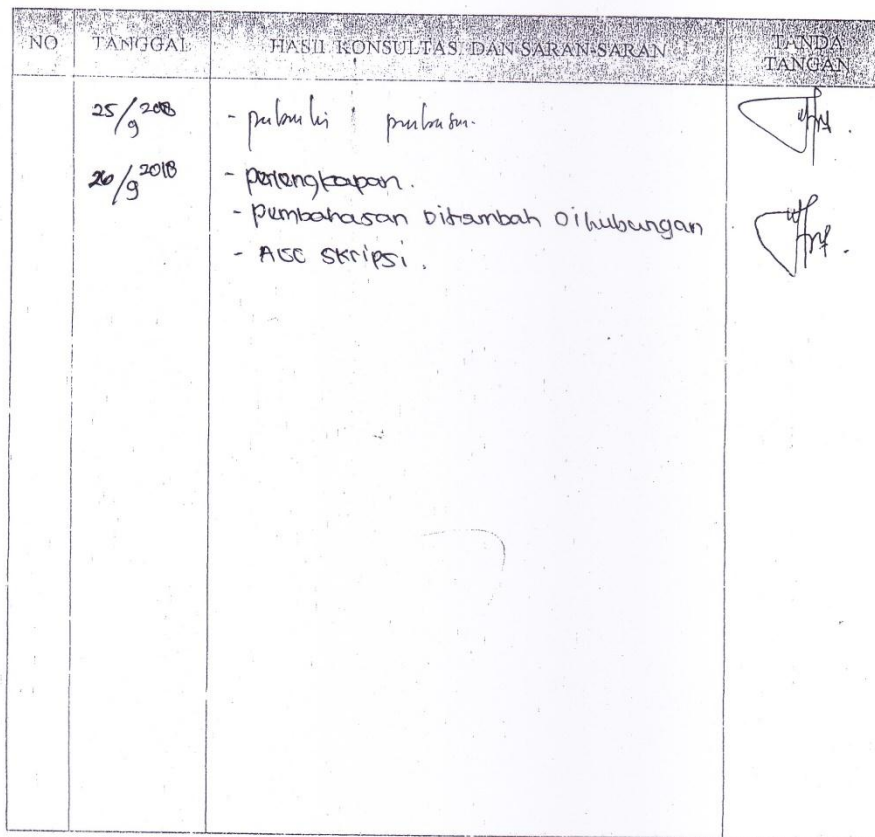 NO TANGGAL HASIL KONSULTASI DAN SARAN-SARAN TANDA TANGAN
25/9 2018 -
26/9 2018 - perlengkapan.
- pembahasan Ditambah Dihubungan
- ACC skripsi.